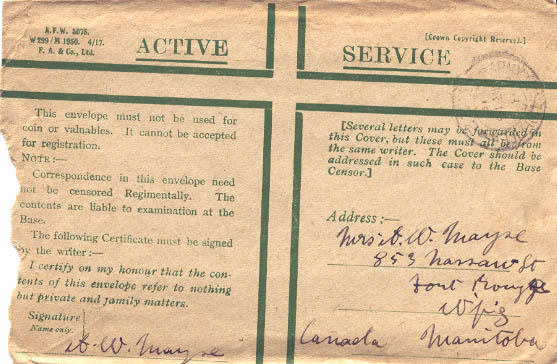 A.F.W. 3078.
W299/M 1950. 4/17.
F. A. & Co., Ltd.
ACTIVE
SERVICE
[Crown Copyright Reserved.]
This envelope must not be used for
coin or valuables. It cannot be accepted
for registration.
NOTE :—
Correspondence in this envelope need
not be censored Regimentally. The
contents are liable to examination at the
Base.
The following Certificate must be signed
by the writer :—
I certify on my honour that the con-
tents of this envelope refer to nothing
but private and family matters.
Signature
Name only.
A. W. Mayse
[Several letters may be forwarded in
this Cover, but these must all be from
the same writer. The Cover should be
addressed in such case to the Base
Censor.]
Address :—
Mrs A. W. Mayse
853 Nassau St
Fort Rouge
Wpg
Manitoba
Canada